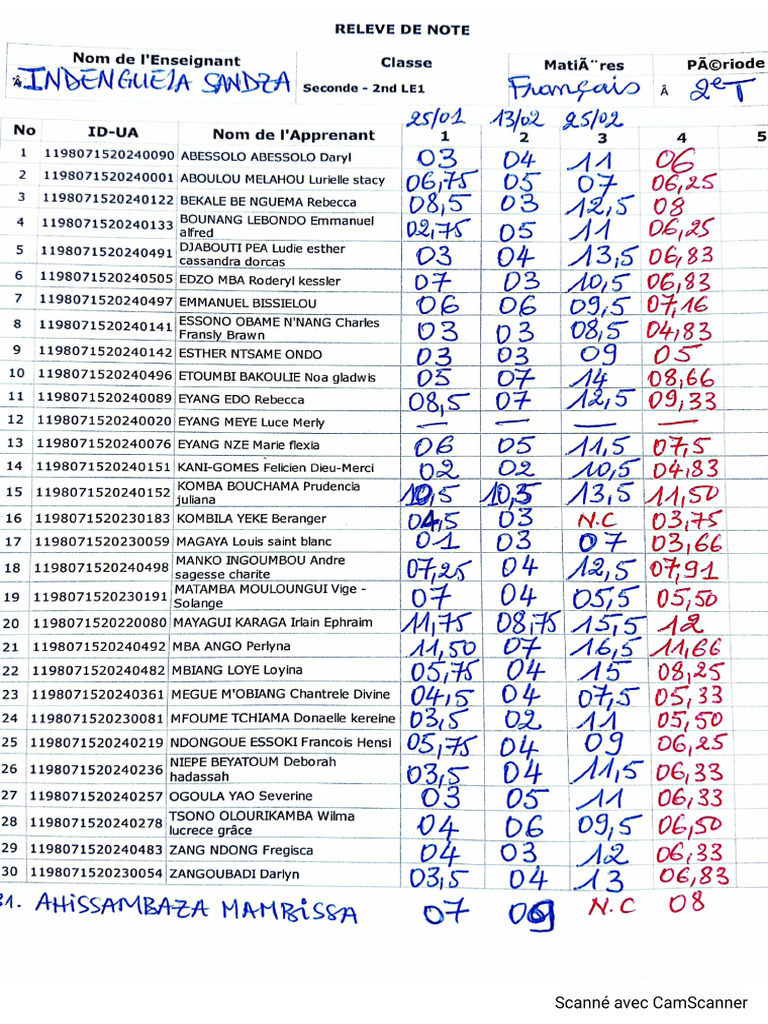 RELEVE DE NOTE
Nom de l'Enseignant Classe MatiÃ¨res PÃ©riode
Â INDENGUELA SANDZA Seconde - 2nd LE1 Français Â 2eT
25/01 13/02 25/02
No ID-UA Nom de l'Apprenant 1 2 3 4 5
1 1198071520240090 ABESSOLO ABESSOLO Daryl 03 04 11 06
2 1198071520240001 ABOULOU MELAHOU Lurielle stacy 06,75 05 07 06,25
3 1198071520240122 BEKALE BE NGUEMA Rebecca 08,5 03 12,5 08
4 1198071520240133 BOUNANG LEBONDO Emmanuel alfred 02,75 05 11 06,25
5 1198071520240491 DJABOUTI PEA Ludie esther cassandra dorcas 03 04 13,5 06,83
6 1198071520240505 EDZO MBA Roderyl kessler 07 03 10,5 06,83
7 1198071520240497 EMMANUEL BISSIELOU 06 06 09,5 07,16
8 1198071520240141 ESSONO OBAME N'NANG Charles Fransly Brawn 03 03 08,5 04,83
9 1198071520240142 ESTHER NTSAME ONDO 03 03 09 05
10 1198071520240496 ETOUMBI BAKOULIE Noa gladwis 05 07 14 08,66
11 1198071520240089 EYANG EDO Rebecca 08,5 07 12,5 09,33
12 1198071520240020 EYANG MEYE Luce Merly — — — —
13 1198071520240076 EYANG NZE Marie flexia 06 05 11,5 07,5
14 1198071520240151 KANI-GOMES Felicien Dieu-Merci 02 02 10,5 04,83
15 1198071520240152 KOMBA BOUCHAMA Prudencia juliana 10,5 10,5 13,5 11,50
16 1198071520230183 KOMBILA YEKE Beranger 04,5 03 N.C 03,75
17 1198071520230059 MAGAYA Louis saint blanc 01 03 07 03,66
18 1198071520240498 MANKO INGOUMBOU Andre sagesse charite 07,25 04 12,5 07,91
19 1198071520230191 MATAMBA MOULOUNGUI Vige - Solange 07 04 05,5 05,50
20 1198071520220080 MAYAGUI KARAGA Irlain Ephraim 11,75 08,75 15,5 12
21 1198071520240492 MBA ANGO Perlyna 11,50 07 16,5 11,66
22 1198071520240482 MBIANG LOYE Loyina 05,75 04 15 08,25
23 1198071520240361 MEGUE M'OBIANG Chantrele Divine 04,5 04 07,5 05,33
24 1198071520230081 MFOUME TCHIAMA Donaelle kereine 03,5 02 11 05,50
25 1198071520240219 NDONGOUE ESSOKI Francois Hensi 05,75 04 09 06,25
26 1198071520240236 NIEPE BEYATOUM Deborah hadassah 03,5 04 11,5 06,33
27 1198071520240257 OGOULA YAO Severine 03 05 11 06,33
28 1198071520240278 TSONO OLOURIKAMBA Wilma lucrece grâce 04 06 09,5 06,50
29 1198071520240483 ZANG NDONG Fregisca 04 03 12 06,33
30 1198071520230054 ZANGOUBADI Darlyn 03,5 04 13 06,83
31. AHISSAMBAZA MAMBISSA 07 09 N.C 08
Scanné avec CamScanner